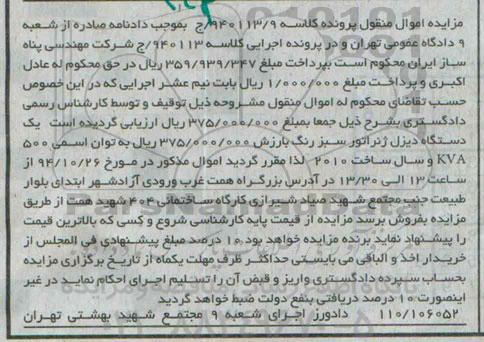 مزایده اموال منقول پرونده کلاسه ۹/۹۴۰۱۱۳/ج بموجب دادنامه صادره از شعبه
۹ دادگاه عمومی تهران و در پرونده اجرایی کلاسه ۹۴۰۱۱۳/ج شرکت مهندسی پناه
ساز ایران محکوم است بپرداخت مبلغ ۳۵۹/۹۳۹/۳۴۷ ریال در حق محکوم له عادل
اکبری و پرداخت مبلغ ۱/۰۰۰/۰۰۰ ریال بابت نیم عشر اجرایی که در این خصوص
حسب تقاضای محکوم له اموال منقول مشروحه ذیل توقیف و توسط کارشناس رسمی
دادگستری بشرح ذیل جمعا بمبلغ ۳۷۵/۰۰۰/۰۰۰ ریال ارزیابی گردیده است یک
دستگاه دیزل ژنراتور سبز رنگ بارزش ۳۷۵/۰۰۰/۰۰۰ ریال به توان اسمی ۵۰۰
KVA و سال ساخت ۲۰۱۰ لذا مقرر گردید اموال مذکور در مورخ ۹۴/۱۰/۲۶ از
ساعت ۱۳ الی ۱۳/۳۰ در آدرس بزرگراه همت غرب ورودی آزادشهر ابتدای بلوار
طبیعت جنب مجتمع شهید صیاد شیرازی کارگاه ساختمانی ۴۰۴ شهید همت از طریق
مزایده بفروش برسد مزایده از قیمت پایه کارشناسی شروع و کسی که بالاترین قیمت
را پیشنهاد نماید برنده مزایده خواهد بود ۱۰ درصد مبلغ پیشنهادی فی المجلس از
خریدار اخذ و الباقی می بایستی حداکثر ظرف مهلت یکماه از تاریخ برگزاری مزایده
بحساب سپرده دادگستری واریز و قبض آن را تسلیم اجرای احکام نماید در غیر
اینصورت ۱۰ درصد دریافتی بنفع دولت ضبط خواهد گردید
۱۱۰/۱۰۶۰۵۲ دادورز اجرای شعبه ۹ مجتمع شهید بهشتی تهران